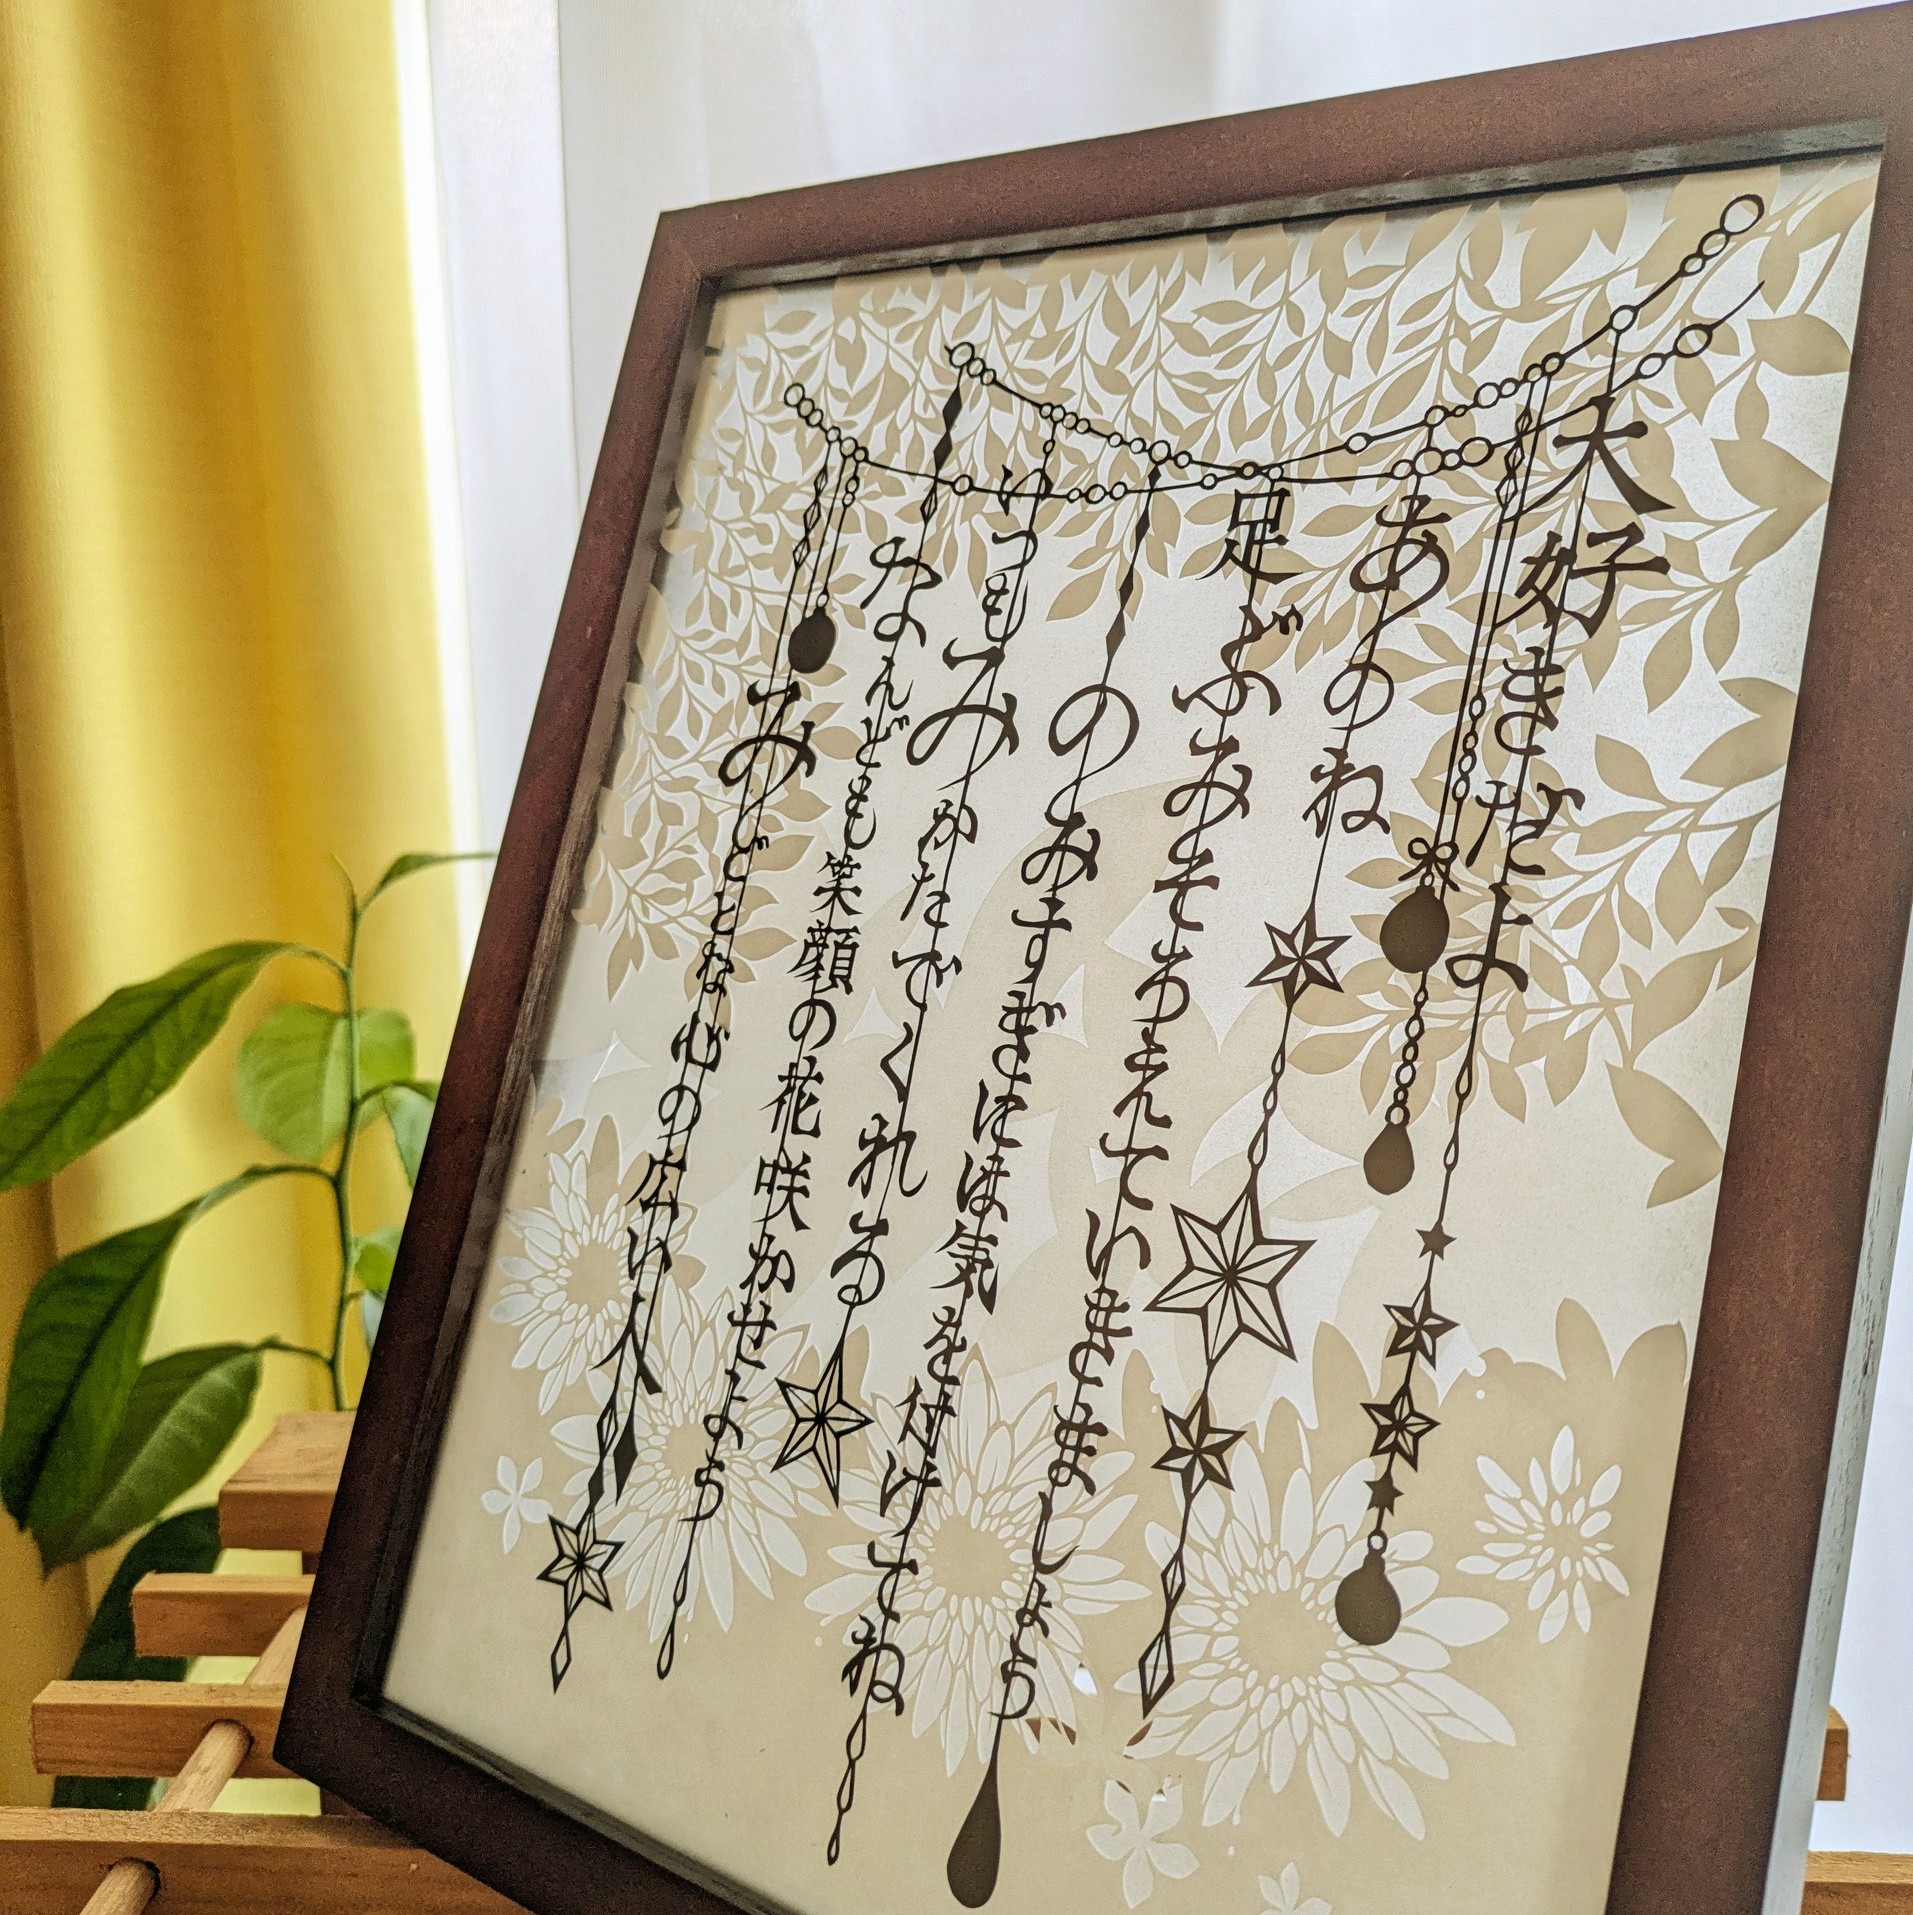 大好きだよ
あのね
足ぶみそろえていきましょう
のみすぎには気を付けてね
いつもみかたでくれる
なんども笑顔の花咲かせよう
みごとな心の広い人